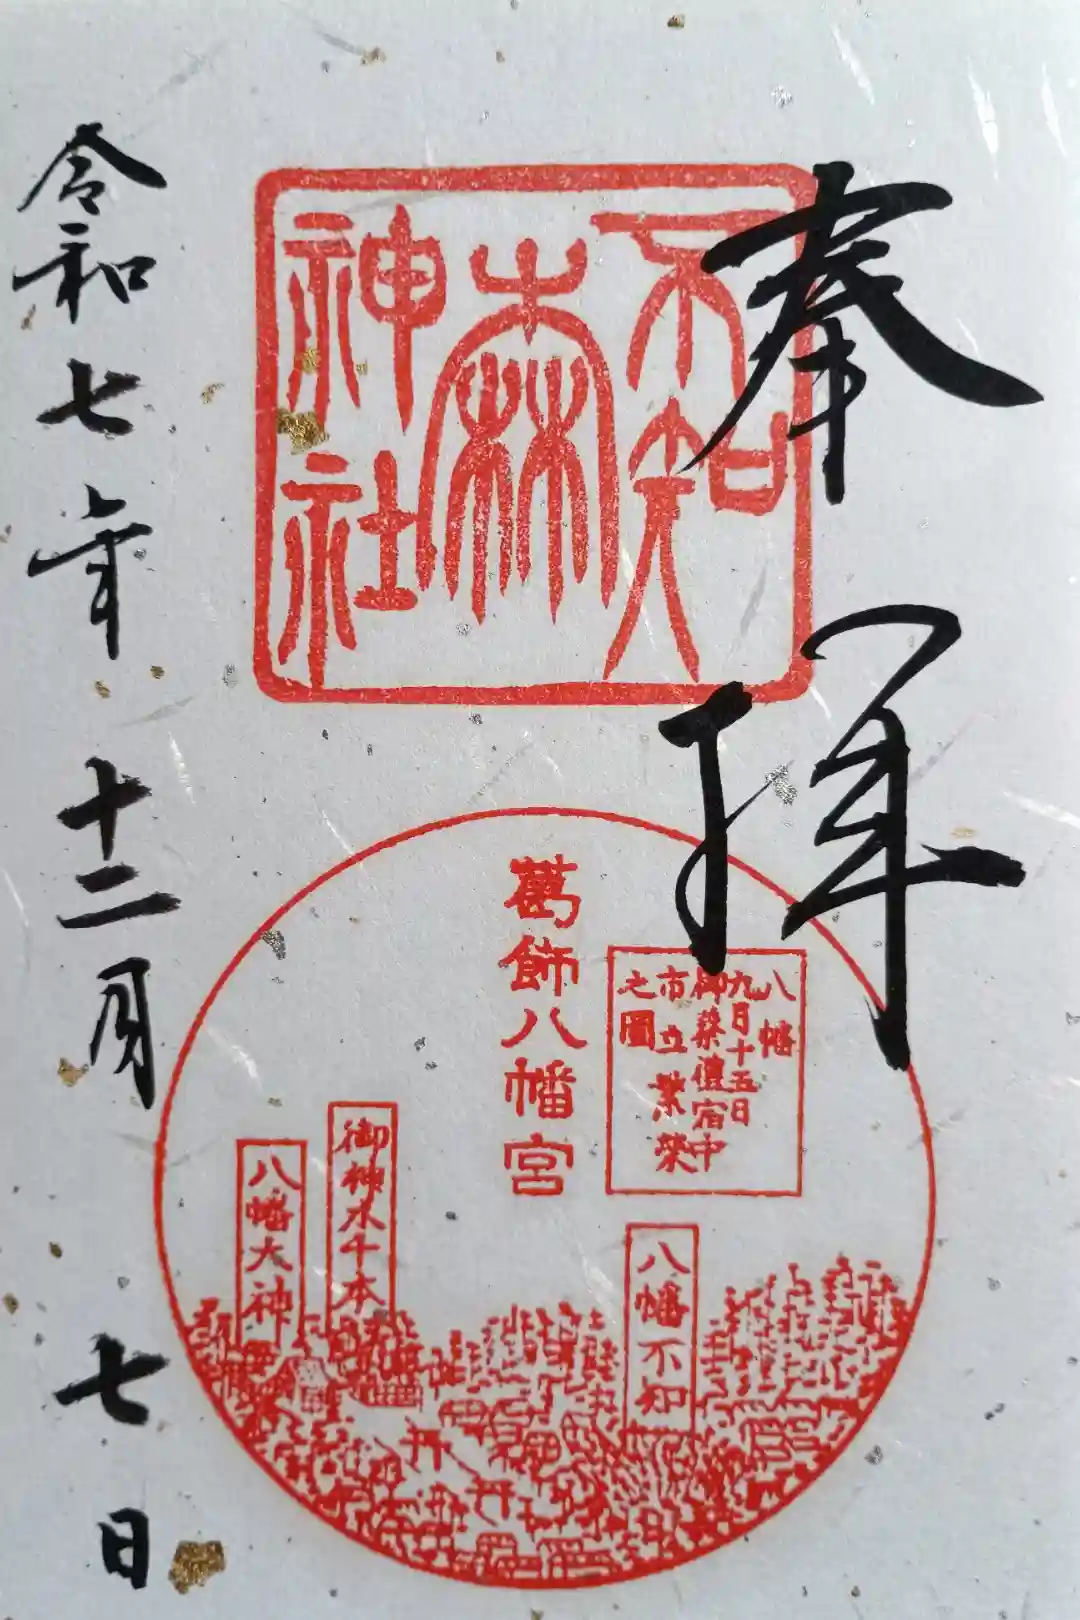 奉拝
不知森神社
葛飾八幡宮
八幡
九月十五日
宿中
市立
之圖
八幡不知
御神木千本
八幡大神
令和七年十二月七日